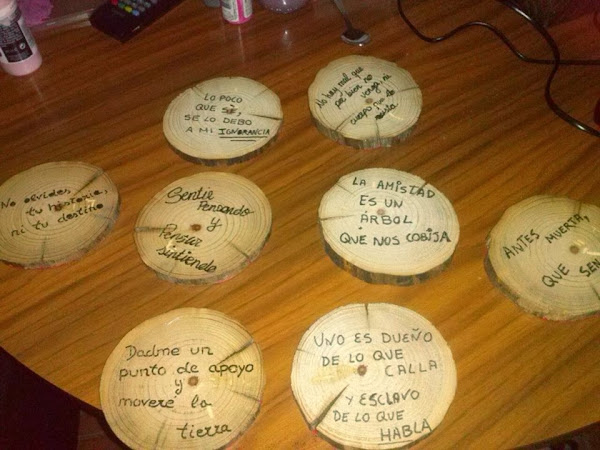 LO POCO
QUE SÉ,
SE LO DEBO
A MI IGNORANCIA
No hay mal que
por bien no
venga, ni
cuerpo que lo
No olvides
tu historia,
ni tu destino
Sentir
Pensando
y
Pensar
sintiendo
LA AMISTAD
ES UN
ÁRBOL
QUE NOS COBIJA
ANTES MUERTA,
QUE SEN
Dadme un
punto de apoyo
y
moveré la
tierra
UNO ES DUEÑO
DE LO QUE
CALLA
Y ESCLAVO
DE LO QUE
HABLA